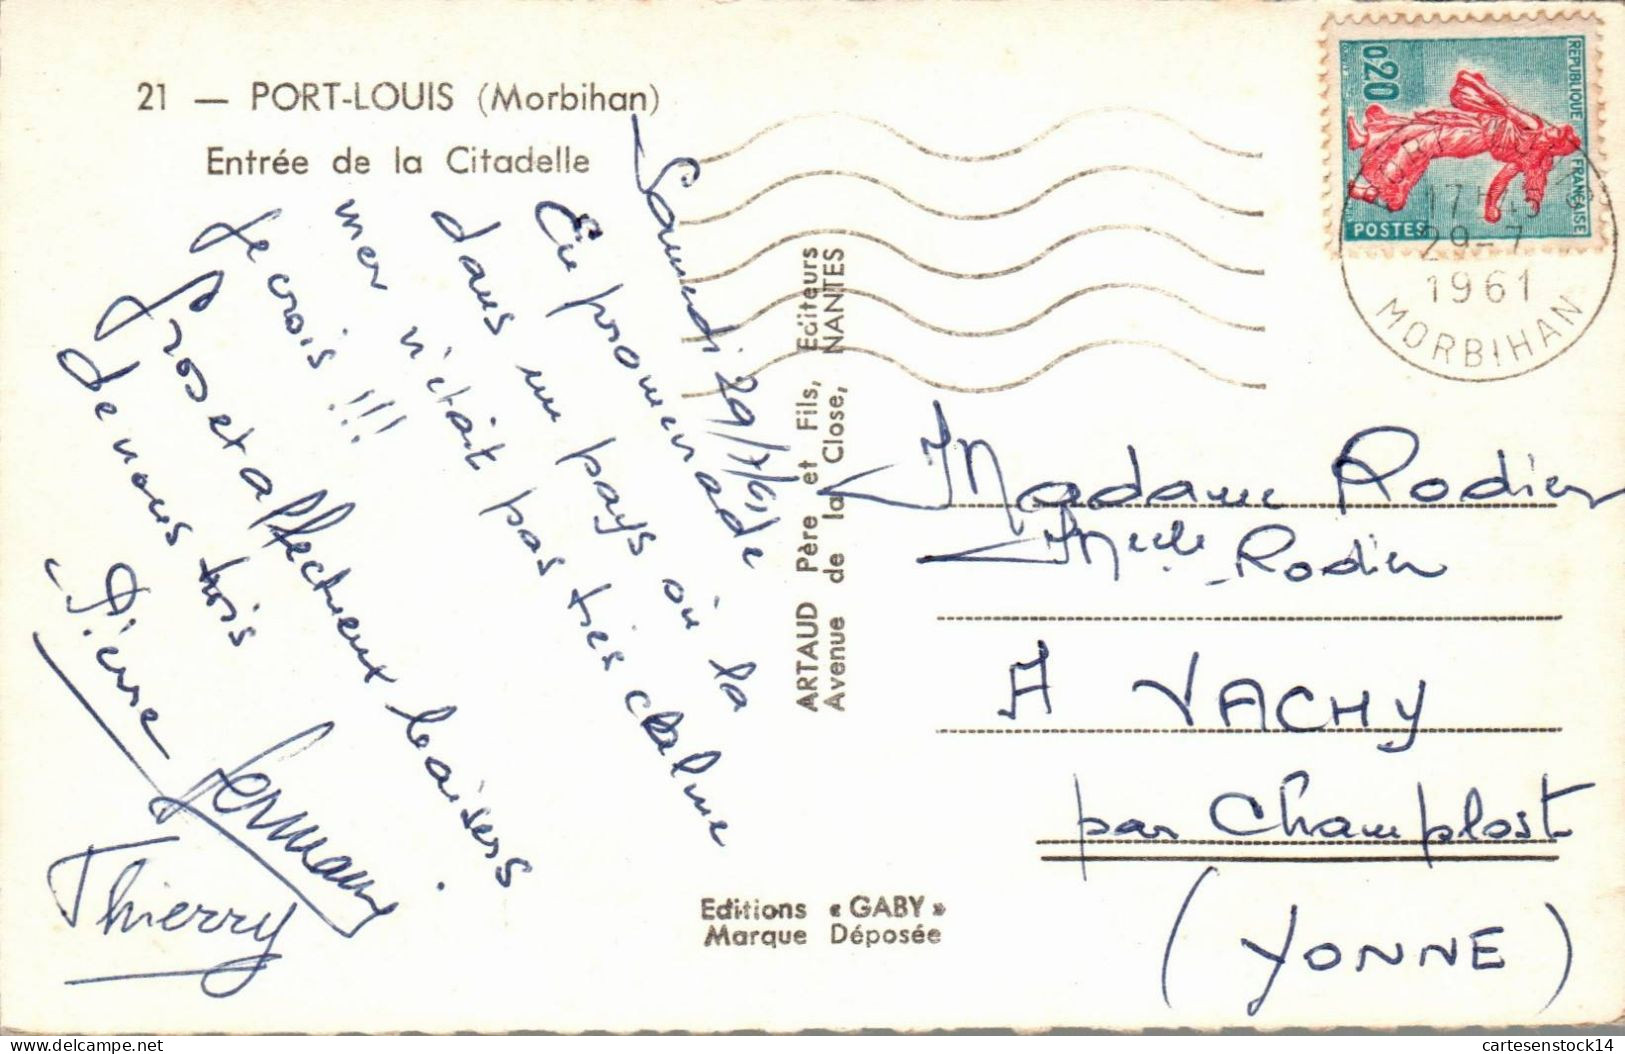 21 — PORT-LOUIS (Morbihan)
Entrée de la Citadelle
Samedi 29/7/61
En promenade
dans un pays où la
mer n'était pas très calme
Je crois !!!
Gros et affectueux baisers
de nous trois
Pierre
Germaine
Thierry
ARTAUD Père et Fils, Editeurs
Avenue de la Close, NANTES
Editions « GABY »
Marque Déposée
0,20
REPUBLIQUE FRANÇAISE
POSTES
17H45
29-7
1961
MORBIHAN
Madame Rodier
Melle Rodier
A VACHY
par Champlost
(YONNE)
delcampe.net
cartesenstock14